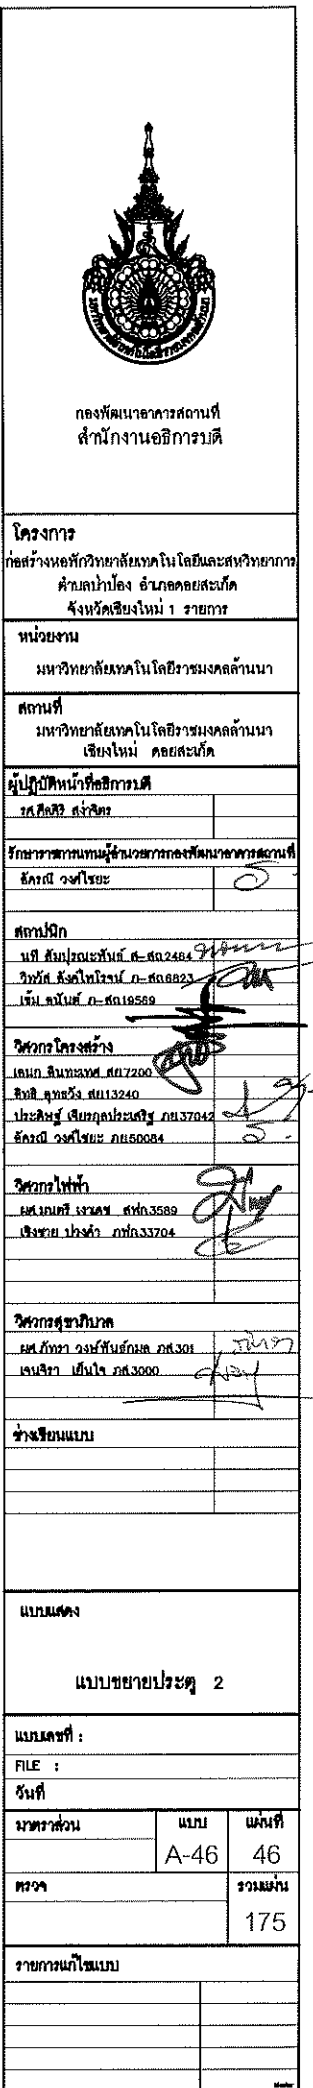 กองพัฒนาอาคารสถานที่
สำนักงานอธิการบดี
โครงการ
ก่อสร้างหอพักวิทยาลัยเทคโนโลยีและสหวิทยาการ
ตำบลป่าป้อง อำเภอดอยสะเก็ด
จังหวัดเชียงใหม่ 1 รายการ
หน่วยงาน
มหาวิทยาลัยเทคโนโลยีราชมงคลล้านนา
สถานที่
มหาวิทยาลัยเทคโนโลยีราชมงคลล้านนา
เชียงใหม่ ดอยสะเก็ด
ผู้ปฏิบัติหน้าที่อธิการบดี
รศ.ศีลศิริ สง่าจิตร
รักษาราชการแทนผู้อำนวยการกองพัฒนาอาคารสถานที่
อัครณี วงศ์ไชยะ
สถาปนิก
นที สัมปุรณะพันธ์ ส-สถ2484
วิทวัส ภ-สถ6823
เข้ม อนันต์ ภ-สถ19569
วิศวกรโครงสร้าง
เอนก สินทะเทศ สย7200
สิทธิ สุทธวัง สย13240
ประดิษฐ์ เจียรกุลประเสริฐ ภย37042
อัครณี วงศ์ไชยะ ภย50084
วิศวกรไฟฟ้า
ผศ.มนตรี เงาเดช สฟก3589
เชิงชาย ปวงคำ ภฟก33704
วิศวกรสุขาภิบาล
ผศ.ภัทรา วงษ์พันธ์กมล ภส.301
เจนจิรา เย็นใจ ภส.3000
ช่างเขียนแบบ
แบบแสดง
แบบขยายประตู 2
แบบเลขที่ :
FILE :
วันที่
มาตราส่วน แบบ แผ่นที่
A-46 46
ตรวจ รวมแผ่น
175
รายการแก้ไขแบบ